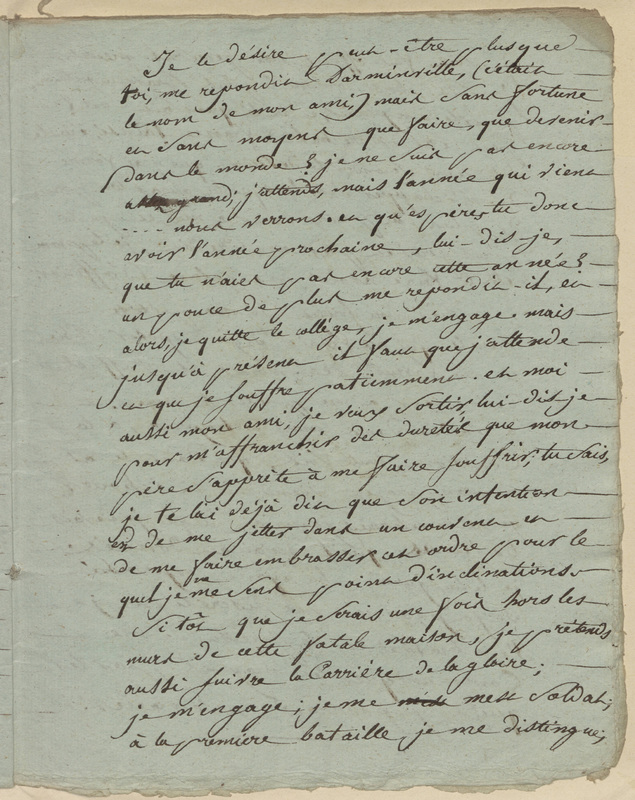 Je le désire peut-être plus que
toi, me repondit Darminville, (c'était
le nom de mon ami,) mais sans fortune
et sans moyens que faire, que devenir
dans le monde ? je ne suis pas encore
grand; j'attends, mais l'année qui vient
.... nous verrons. et qu'espères-tu donc
avoir l'année prochaine, lui-dis-je,
que tu n'aies pas encore cette année ?
un pouce de plus me repondit-il, et
alors, je quitte le collége, je m'engage. mais
jusqu'à présent il faut que j'attende
et que je souffre patiemment. et moi
aussi mon ami, je veux sortir, lui dis je
pour m'affranchir des duretés que mon
père s'apprête à me faire souffrir; tu sais,
je te l'ai déjà dit que son intention
est de me jetter dans un couvent et
de me faire embrasser cet ordre pour le
quel je ne me sens point d'inclinations.
Si tôt que je serais une fois hors les
murs de cette fatale maison, je prétends
aussi suivre la Carrière de la gloire;
je m'engage; je me mets Soldat;
à la première bataille, je me distingue;